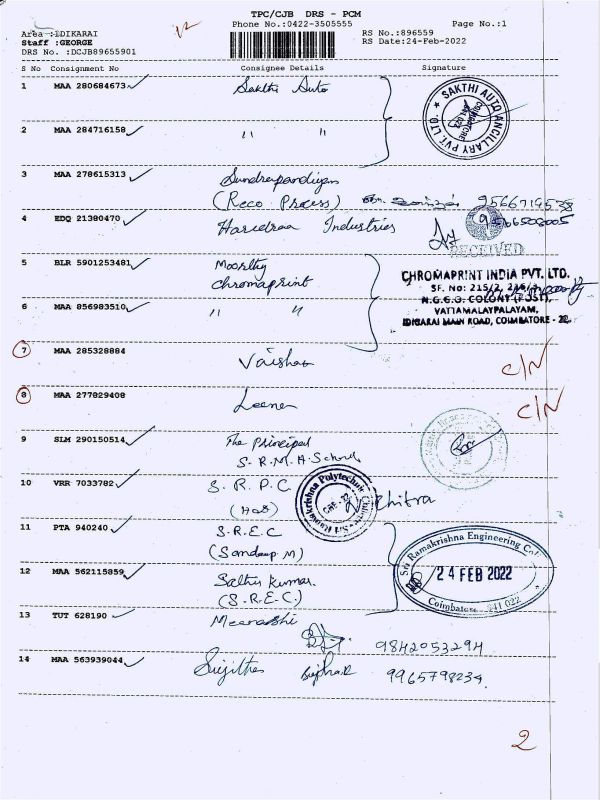 TPC/CJB DRS - PCM
Phone No.:0422-3505555 Page No.:1
Area :EDIKARAI RS No.:896559
Staff :GEORGE RS Date:24-Feb-2022
DRS No. :DCJB89655901
S No Consignment No Consignee Details Signature
1 MAA 280684673 Sakthi Auto
SAKTHI AUTO ANCILLARY PVT. LTD.
2 MAA 284716158 " "
3 MAA 278615313 Sundrapandiyan
(Reco Process) 9566719538
4 EDQ 21380470 Haridraa Industries
RECEIVED
5 BLR 5901253481 Moorthy
Chromaprint
CHROMAPRINT INDIA PVT. LTD.
SF. No: 215/2, 216/3,
N.G.G.O. COLONY (POST),
VATTAMALAYPALAYAM,
EDIGARAI MAIN ROAD, COIMBATORE - 22.
6 MAA 856983510 " "
7 MAA 285328884 Vaishnav C/N
8 MAA 277829408 Leena C/N
9 SLM 290150514 The Principal
S.R.M.H. School
10 VRR 7033782 S.R.P.C
(HOS) Chitra
Sri Ramakrishna Polytechnic
11 PTA 940240 S.R.E.C
(Sandeep M)
Sri Ramakrishna Engineering Col
24 FEB 2022
Coimbatore - 641 022
12 MAA 562115859 Sathis Kumar
(S.R.E.C.)
13 TUT 628190 Meenakshi
9842053294
14 MAA 563939044 Sujitha 9965798234
2